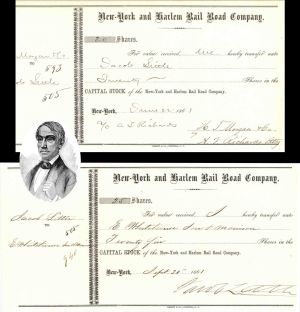 New-York and Harlem Rail Road Company.
20 Shares.
Morgan & Co.
TO
593
Jacob Little
505
For value received, We hereby transfer unto
Jacob Little
Twenty Shares in the
CAPITAL STOCK of the New-York and Harlem Rail Road Company.
New-York,
A S Richards
New-York and Harlem Rail Road Company.
25 Shares.
Jacob Little
TO
505
For value received, I hereby transfer unto
E Whitehouse Son & Morison
Twenty Five Shares in the
CAPITAL STOCK of the New-York and Harlem Rail Road Company.
New-York, Sept. 20
Jacob Little